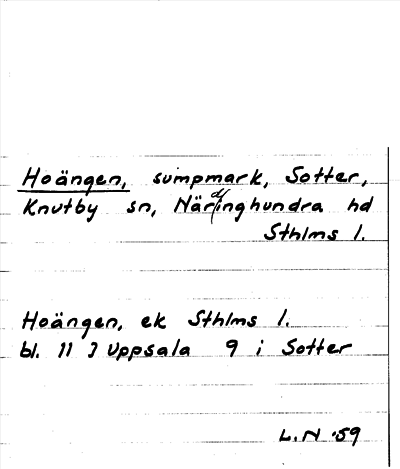 Hoängen, sumpmark, Sotter,
Knutby sn, Närdinghundra hd
Sthlms l.
Hoängen, ek Sthlms l.
bl. 11 J Uppsala 9 i Sotter
L.N '59